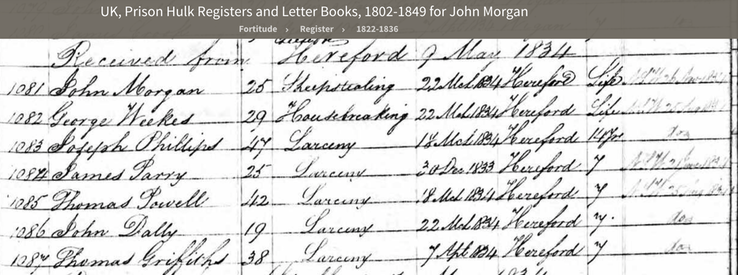 UK, Prison Hulk Registers and Letter Books, 1802-1849 for John Morgan
Fortitude › Register › 1822-1836
Received from Hereford 9 May 1834
1081 John Morgan 25 Sheepstealing 22 Mch 1834 Hereford Life
1082 George Weekes 29 Housebreaking 22 Mch 1834 Hereford Life
1083 Joseph Phillips 47 Larceny 18 Mch 1834 Hereford 14 Yrs
1084 James Parry 25 Larceny 30 Dec 1833 Hereford 7
1085 Thomas Powell 42 Larceny 18 Mch 1834 Hereford 7
1086 John Dally 19 Larceny 22 Mch 1834 Hereford 7
1087 Thomas Griffiths 38 Larceny 7 Apl 1834 Hereford 7